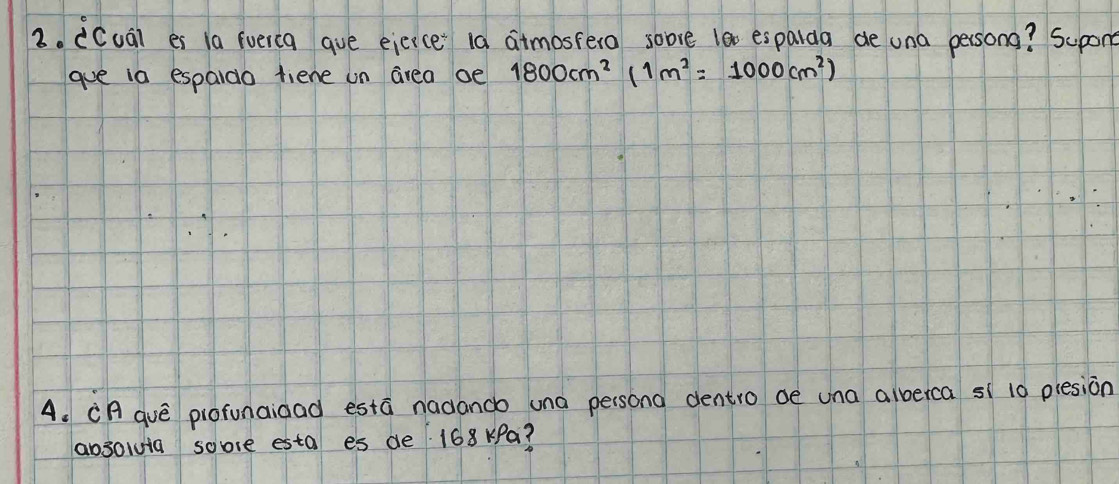 2. ¿Cuál es la fuerza que ejerce la átmosfera sobre la espalda de una persona? Supone
que la espalda tiene un área de 1800cm² (1m² = 1000cm²)
4. ¿A qué profundidad está nadando una persona dentro de una alberca sí la presión
absoluta sobre esta es de 168 kPa?